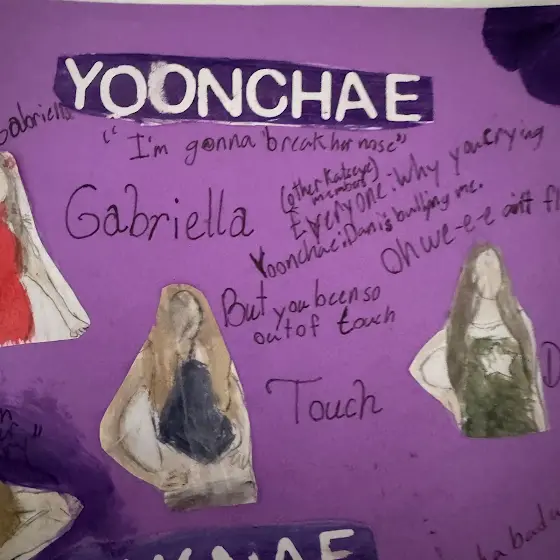 YOONCHAE
Gabriella
"I'm gonna break her nose"
Gabriella
(other Katseye members)
Everyone: Why you crying
Yoonchae: Dani's bullying me.
Oh we-e-e ain't
But you been so
out of touch
Touch